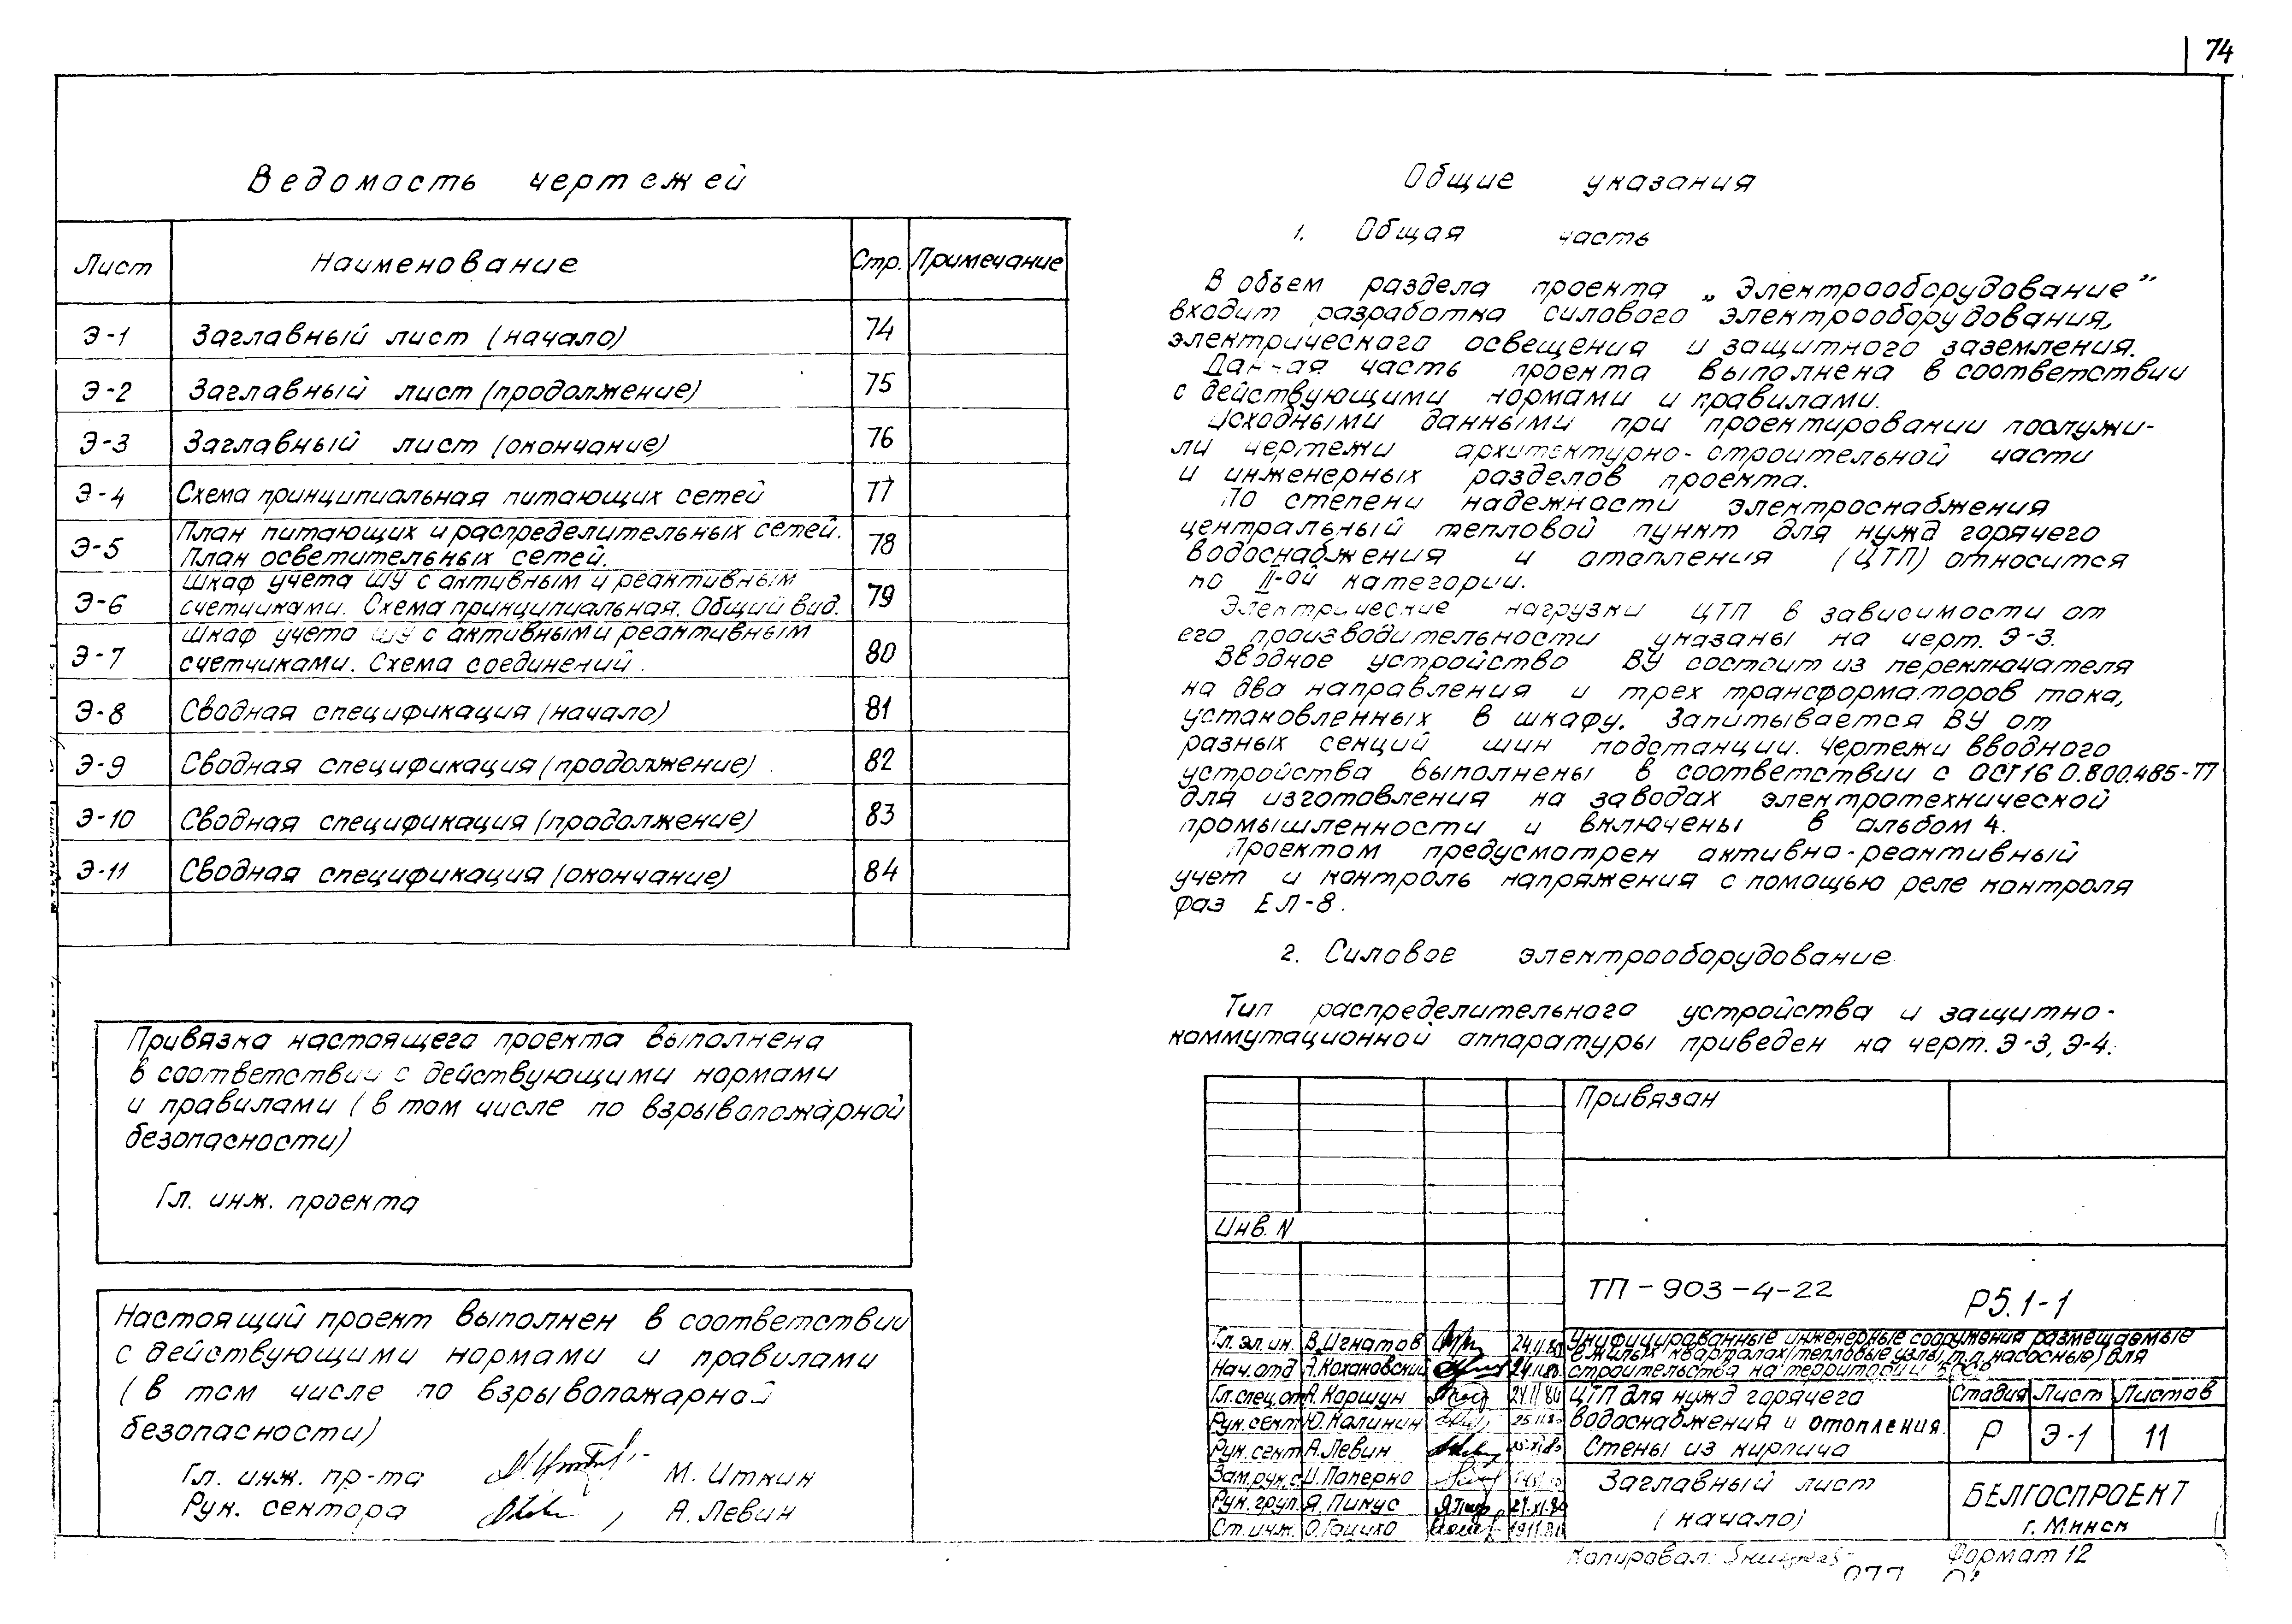 74
Ведомость чертежей
Лист Наименование Стр. Примечание
Э-1 Заглавный лист (начало) 74
Э-2 Заглавный лист (продолжение) 75
Э-3 Заглавный лист (окончание) 76
Э-4 Схема принципиальная питающих сетей 77
Э-5 План питающих и распределительных сетей. План осветительных сетей. 78
Э-6 Шкаф учета ШУ с активным и реактивным счетчиками. Схема принципиальная. Общий вид. 79
Э-7 Шкаф учета ШУ с активным и реактивным счетчиками. Схема соединений. 80
Э-8 Сводная спецификация (начало) 81
Э-9 Сводная спецификация (продолжение) 82
Э-10 Сводная спецификация (продолжение) 83
Э-11 Сводная спецификация (окончание) 84
Привязка настоящего проекта выполнена
в соответствии с действующими нормами
и правилами (в том числе по взрывопожарной
безопасности)
Гл. инж. проекта
Настоящий проект выполнен в соответствии
с действующими нормами и правилами
(в том числе по взрывопожарной
безопасности)
Гл. инж. пр-та М. Иткин
Рук. сектора А. Левин
Общие указания
1. Общая часть
В объем раздела проекта „Электрооборудование"
входит разработка силового электрооборудования,
электрического освещения и защитного заземления.
Данная часть проекта выполнена в соответствии
с действующими нормами и правилами.
Исходными данными при проектировании послужи-
ли чертежи архитектурно-строительной части
и инженерных разделов проекта.
По степени надежности электроснабжения
центральный тепловой пункт для нужд горячего
водоснабжения и отопления (ЦТП) относится
по II-ой категории.
Электрические нагрузки ЦТП в зависимости от
его производительности указаны на черт. Э-3.
Вводное устройство ВУ состоит из переключателя
на два направления и трех трансформаторов тока,
установленных в шкафу. Запитывается ВУ от
разных секций шин подстанции. Чертежи вводного
устройства выполнены в соответствии с ОСТ16 0.800.485-77
для изготовления на заводах электротехнической
промышленности и включены в альбом 4.
Проектом предусмотрен активно-реактивный
учет и контроль напряжения с помощью реле контроля
фаз ЕЛ-8.
2. Силовое электрооборудование
Тип распределительного устройства и защитно-
коммутационной аппаратуры приведен на черт. Э-3, Э-4.
Привязан
Инв. N
ТП-903-4-22 Р5.1-1
Гл. эл. ин. В. Игнатов 24.11.80
Нач. отд А. Кохановский 24.11.80
Гл. спец. от А. Коршун 24.11.80
Рук. сект Ю. Калинин
Рук. сект А. Левин
Зам. рук. с И. Паперно
Рук. груп. Я. Пикус 24.XI.80
Ст. инж. О. Гацихо
Унифицированные инженерные сооружения размещаемые
в жилых кварталах (тепловые узлы, т.п., насосные) для
строительства на территории
ЦТП для нужд горячего
водоснабжения и отопления.
Стены из кирпича
Стадия Лист Листов
Р Э-1 11
Заглавный лист
(начало)
БЕЛГОСПРОЕКТ
г. Минск
Копировал: Формат 12